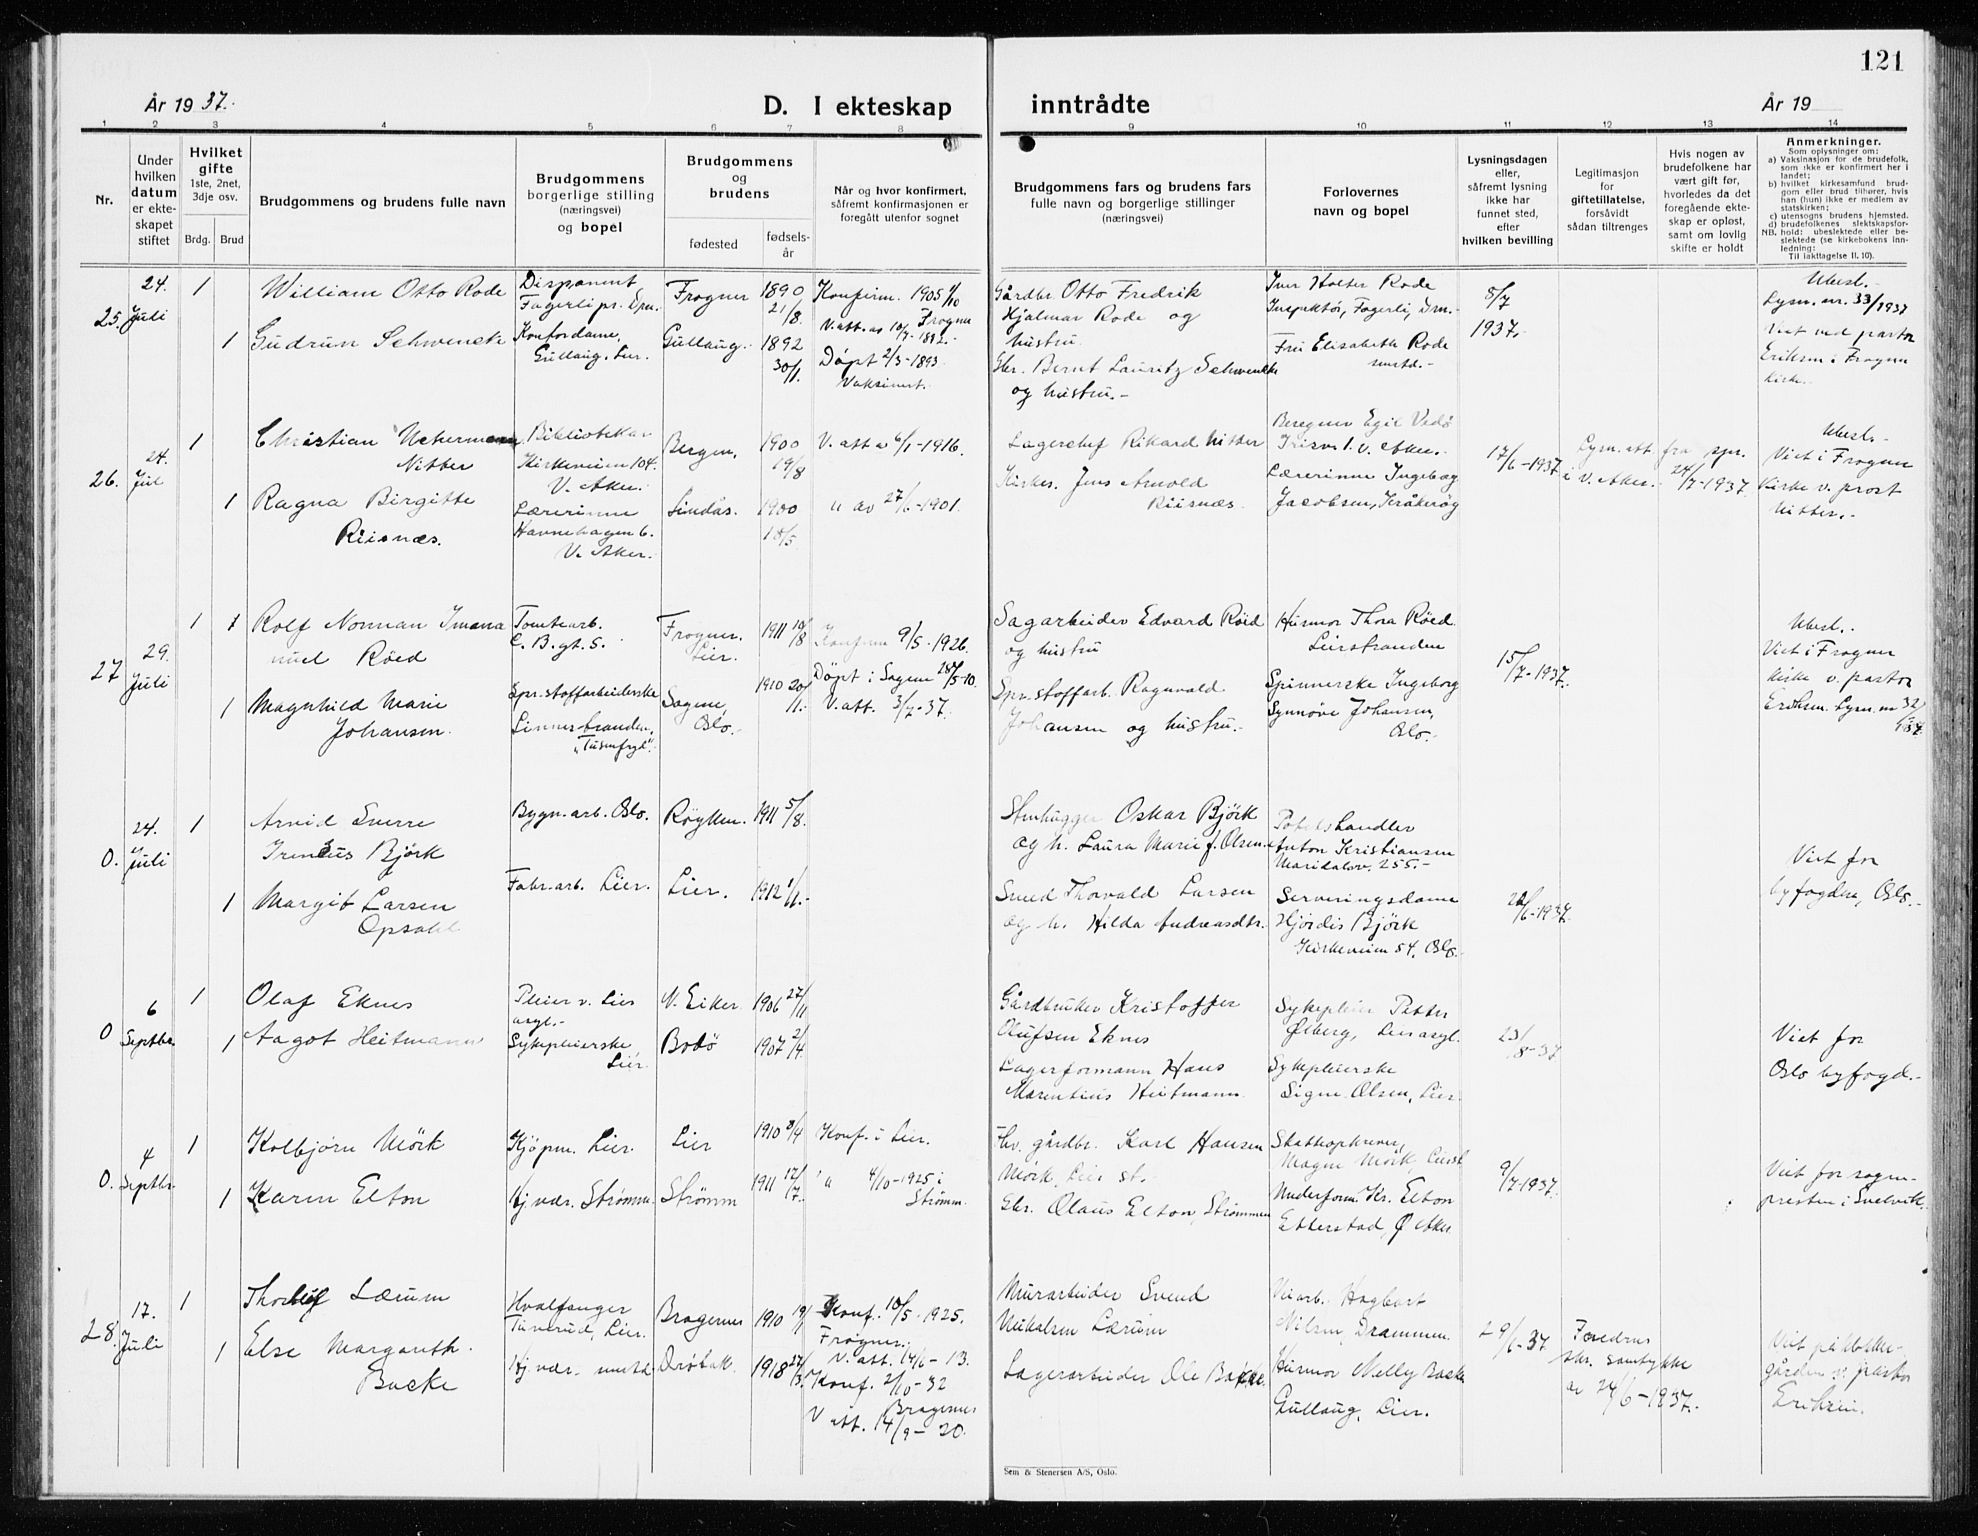 121
År 1937.
D. I ekteskap inntrådte
År 19
1 2 3 4 5 6 7 8 9 10 11 12 13 14
Nr.
Under hvilken datum er ekteskapet stiftet
Hvilket gifte
1ste, 2net, 3dje osv.
Brdg. Brud
Brudgommens og brudens fulle navn
Brudgommens borgerlige stilling (næringsvei) og bopel
Brudgommens og brudens
fødested
fødselsår
Når og hvor konfirmert, såfremt konfirmasjonen er foregått utenfor sognet
Brudgommens fars og brudens fars fulle navn og borgerlige stillinger (næringsvei)
Forlovernes navn og bopel
Lysningsdagen eller, såfremt lysning ikke har funnet sted, efter hvilken bevilling
Legitimasjon for giftetillatelse, forsåvidt sådan tiltrenges
Hvis nogen av brudefolkene har vært gift før, hvorledes da det foregående ekteskap er opløst, samt om lovlig skifte er holdt
Anmerkninger.
Som oplysninger om:
a) Vaksinasjon for de brudefolk, som ikke er konfirmert her i landet;
b) hvilket kirkesamfund brudgom eller brud tilhører, hvis han (hun) ikke er medlem av statskirken;
c) utensogns brudens hjemsted.
d) brudefolkenes slektskapsforhold: ubeslektede eller beslektede (se kirkebokens innledning:
NB.
Til iakttagelse II. 10).
25. 24. Juli
1
William Otto Rode
Disponent
Fagerli pr. Dm.
Frogner
1890 21/8.
Konfirm. 1905 1/10 Frogner
V. att. av 10/7-1892.-
Gårdbr. Otto Fredrik
Hjalmar Rode og
hustru.
Iver Holter Rode
Inspektør, Fagerli, Dm.-
8/7
1937.
Ubesl.-
Lysn. nr. 33/1937
Viet ved pastor
Eriksen i Frogner
kirke.-
1
Gudrun Schwencke
Kontordame,
Gullaug, Lier.
Gullaug.
1892 30/1.
Døpt 2/3-1893.
Vaksinert.
Gbr. Bernt Lauritz Schwencke
og hustru.-
Fru Elisabeth Rode
smstd.-
26. 24. Jul
1
Christian Uchermann
Nitter
Bibliotekar
Kirkeveien 104.
V. Aker.
Bergen.
1900 19/8
V. att a 6/1-1916.
Lagerchef Rikard Nitter
Beregner Egil Vedø
V. Aker.
17/6-1937.
Lysn. att. fra spr.
i V. Aker. 24/7-1937.
Ubesl.-
Viet i Frogner
Kirke v. prost
Nitter.-
1
Ragna Birgitte
Riisnæs.
Lærerinne
Havnehagen 6.
V. Aker.
Lindås.
1900 18/5
" av 27/6-1901.
Kirkes. Jens Arnold
Riisnæs.
Lærerinne Ingeborg
Jacobsen, Kråkerøy
27 29. Juli
1 1
Rolf Norman Imma
nuel Røed
Tomtearb.
Frogner.
Lier.
1911 10/8
Konfirm 9/5-1926.
Sagarbeider Edvard Røed
og hustru
Husmor Thora Røed
Lierstranden
15/7-1937.
Ubesl.-
Viet i Frogner
kirke v. pastor
Eriksen. Lysn. nr 32
1
Magnhild Marie
Johansen.
Spr.stoffarbeiderske
Linnesstranden,
"Tusenfryd".
Sagene,
Oslo.-
1910 20/11.-
Døpt i Sagene 28/5-10.
V. att. 3/7-37.
Spr.stoffarb. Ragnvald
Johansen og hustru.-
Spinnerske Ingeborg
Synnøve Johansen,
Oslo.-
0. 24. Juli
1
Arvid Sverre
Ireneus Bjørk
Bygn.arb. Oslo.
Røyken.
1911 5/8.
Stenhugger Oskar Bjørk
og h. Laura Marie f. Olsen.
Potetshandler
Anton Kristiansen
Maridalsv. 255.-
Viet for
byfogden, Oslo.-
1
Margit Larsen
Opsahl
Fabr.arb. Lier.
Lier.
1912 1/1.-
Smed Thorvald Larsen
og h. Hilda Andreasdtr.
Serveringsdame
Hjørdis Bjørk
Kirkeveien 54, Oslo.-
0 6 Septbr.
1
Olaf Eknes
Pleier v. Lier
asyl.-
N. Eiker
1906 27/11
Gårdbruker Kristoffer
Olufsen Eknes
Sykepleier Petter
Lier asyl.
23/8-37
Viet for
Oslo byfogd.-
1
Aagot Heitmann
Sykepleierske
Lier
Bodø
1907 2/4
Lagerformann Hans
Marentius Heitmann
Sykepleierske
Signe Olsen, Lier.
0. 4 Septbr
1
Kolbjørn Mörk
Kjøpm. Lier.
Lier
1910 8/4
Konf. i Lier.
Fhv. gårdbr. Karl Hansen
Mörk, Lier st.
Skatteopkrever,
Magne Mörk, Lierst
9/7-1937.
Viet for sogne-
presten i Svelvik.
1
Karen Elton
Hj.vær. Strømm.
Strømm
1911 17/7.
" 4/10-1925 i
Strømm.
Gbr. Olaus Elton, Strømmen
Underform. Kr. Elton
Etterstad, Ø Aker
28. 17. Juli
1
Thorleif Lærum
Hvalfanger
Tuverud, Lier.
Bragernes
1910 19/
Konf. 10/5-1925.
Frogner.
V. att. 14/6-13.
Murarbeider Svend
Nikolsen Lærum
Hagbart
Nilsen, Drammen.
29/6-37
Foreldres
skr. samtykke
av 24/6-1937.
Viet på
gården v. pastor
Eriksen.
1
Else Margareth
Backe
Hj.vær. smstd.
Drøbak.
1918 27/3.
Konf. 2/10-32
Bragernes
V att. 14/9-20.
Lagerarbeider Ole Backe.
Husmor Nelly Backe
Gullaug, Lier.
Sem & Stenersen A/S, Oslo.